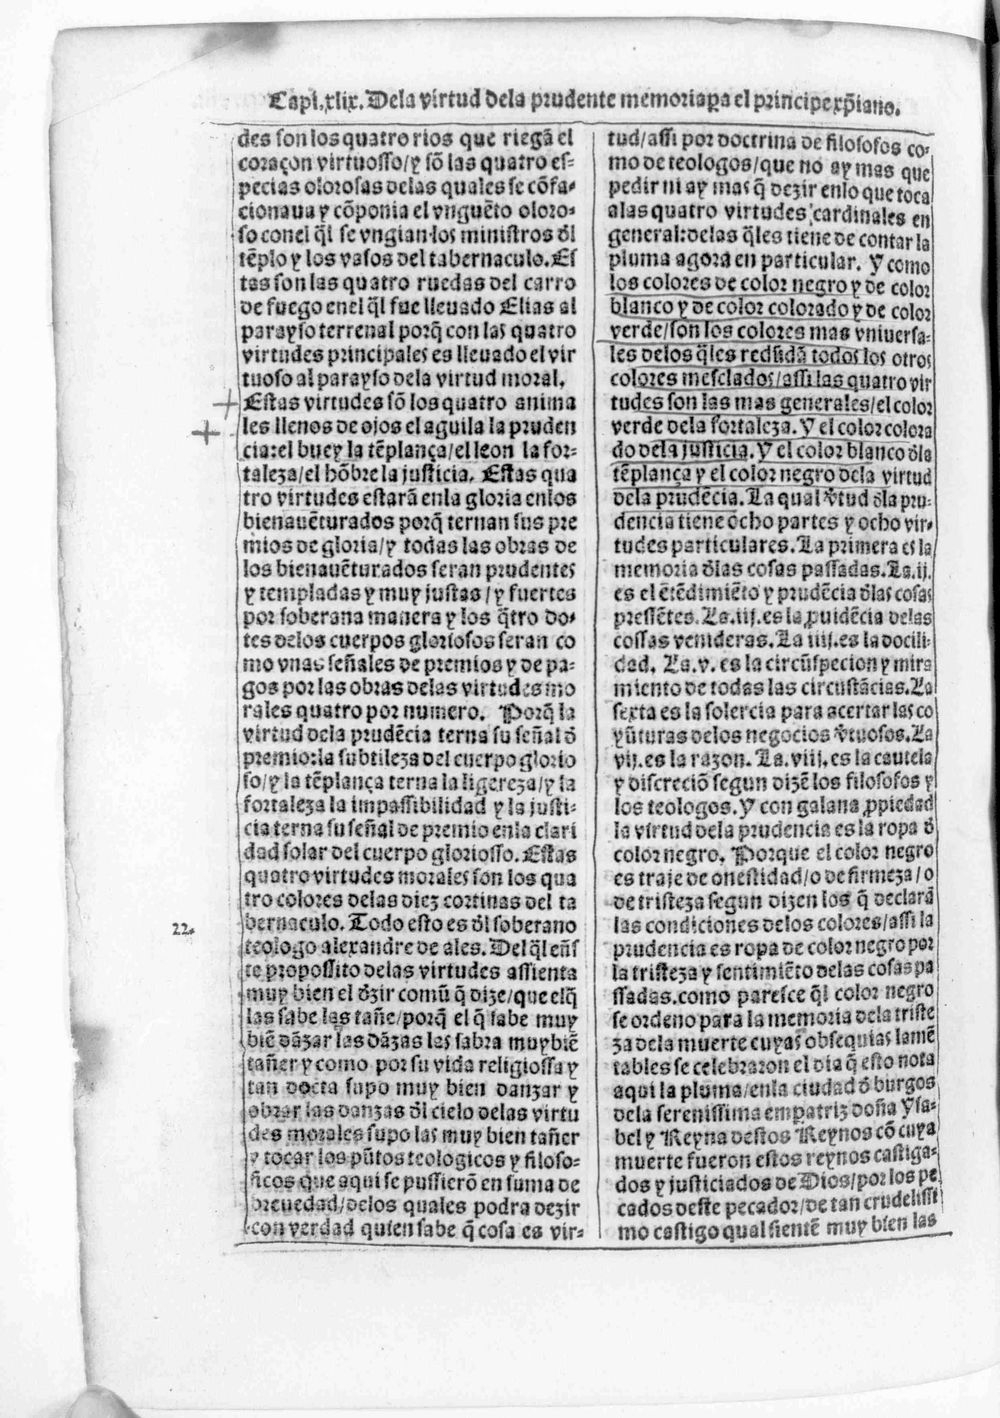 Capi.xlix. Dela virtud dela prudente memoria pa el principe xp̃iano.
des son los quatro rios que riegã el
coraçon virtuosso/y sõ las quatro es-
pecias olorosas delas quales se cõfa-
cionaua y cõponia el vnguẽto oloro-
so con el q̃l se vngian los ministros ðl
tẽplo y los vasos del tabernaculo. Es
tas son las quatro ruedas del carro
de fuego enel q̃l fue lleuado Elias al
parayso terrenal porq̃ con las quatro
virtudes principales es lleuado el vir
tuoso al parayso dela virtud moral.
Estas virtudes sõ los quatro anima
les llenos de ojos el aguila la pruden
cia:el buey la tẽplança/el leon la for-
taleza/el hõbre la justicia. Estas qua
tro virtudes estarã enla gloria enlos
bienauẽturados porq̃ ternan sus pre
mios de gloria/y todas las obras de
los bienauẽturados seran prudentes
y templadas y muy justas/y fuertes
por soberana manera y los q̃tro do-
tes delos cuerpos gloriosos seran co
mo vnas señales de premios y de pa-
gos por las obras delas virtudes mo
rales quatro por numero. Porq̃ la
virtud dela prudẽcia terna su señal ð
premio:la subtileza del cuerpo glorio
so/y la tẽplança terna la ligereza/y la
fortaleza la impassibilidad y la justi-
cia terna su señal de premio enla clari
dad solar del cuerpo gloriosso. Estas
quatro virtudes morales son los qua
tro colores delas diez cortinas del ta
bernaculo. Todo esto es ðl soberano
22.
teologo alexandre de ales. Del q̃l eñs
te propossito delas virtudes assienta
muy bien el ðzir comũ q̃ dize/que elq̃
las sabe las tañe/porq̃ el q̃ sabe muy
biẽ dãzar las dãzas las sabra muy biẽ
tañer y como por su vida religiossa y
tan docta supo muy bien danzar y
obrar las danzas ðl cielo delas virtu
des morales supo las muy bien tañer
y tocar los pũtos teologicos y filoso-
ficos que aqui se pussierõ en suma de
breuedad/delos quales podra dezir
con verdad quien sabe q̃ cosa es vir-
tud/assi por doctrina de filosofos co-
mo de teologos/que no ay mas que
pedir ni ay mas q̃ dezir enlo que toca
alas quatro virtudes cardinales en
general:delas q̃les tiene de contar la
pluma agora en particular. Y como
los colores de color negro y de color
blanco y de color colorado y de color
verde/son los colores mas vniuersa-
les delos q̃les redũdã todos los otros
colores mesclados/assi las quatro vir
tudes son las mas generales/el color
verde dela fortaleza. Y el color colora
do dela justicia. Y el color blanco ðla
tẽplança y el color negro dela virtud
dela prudẽcia. La qual ṽtud ðla pru-
dencia tiene ocho partes y ocho vir-
tudes particulares. La primera es la
memoria ðlas cosas passadas. La.ij.
es el ẽtẽdimiẽto y prudẽcia ðlas cosas
pressẽtes. La.iij.es la ꝓuidẽcia delas
cossas venideras. La iiij.es la docili-
dad. La.v. es la circũspecion y mira
miento de todas las circustãcias. La
sexta es la solercia para acertar las co
yũturas delos negocios ṽtuosos. La
vij.es la razon. La.viij.es la cautela
y discreciõ segun dizẽ los filosofos y
los teologos. Y con galana ꝓpiedad
la virtud dela prudencia es la ropa ð
color negro. Porque el color negro
es traje de onestidad/o de firmeza/o
de tristeza segun dizen los q̃ declarã
las condiciones delos colores/assi la
prudencia es ropa de color negro por
la tristeza y sentimiẽto delas cosas pa
ssadas.como paresce q̃l color negro
se ordeno para la memoria dela triste
za dela muerte cuyas obsequias lamẽ
tables se celebraron el dia q̃ esto nota
aqui la pluma/enla ciudad ð burgos
dela serenissima emꝑatriz doña Ysa-
bel y Reyna destos Reynos cõ cuya
muerte fueron estos reynos castiga-
dos y justiciados de Dios/por los pe
cados deste pecador/de tan crudelissi
mo castigo qual sientẽ muy bien las